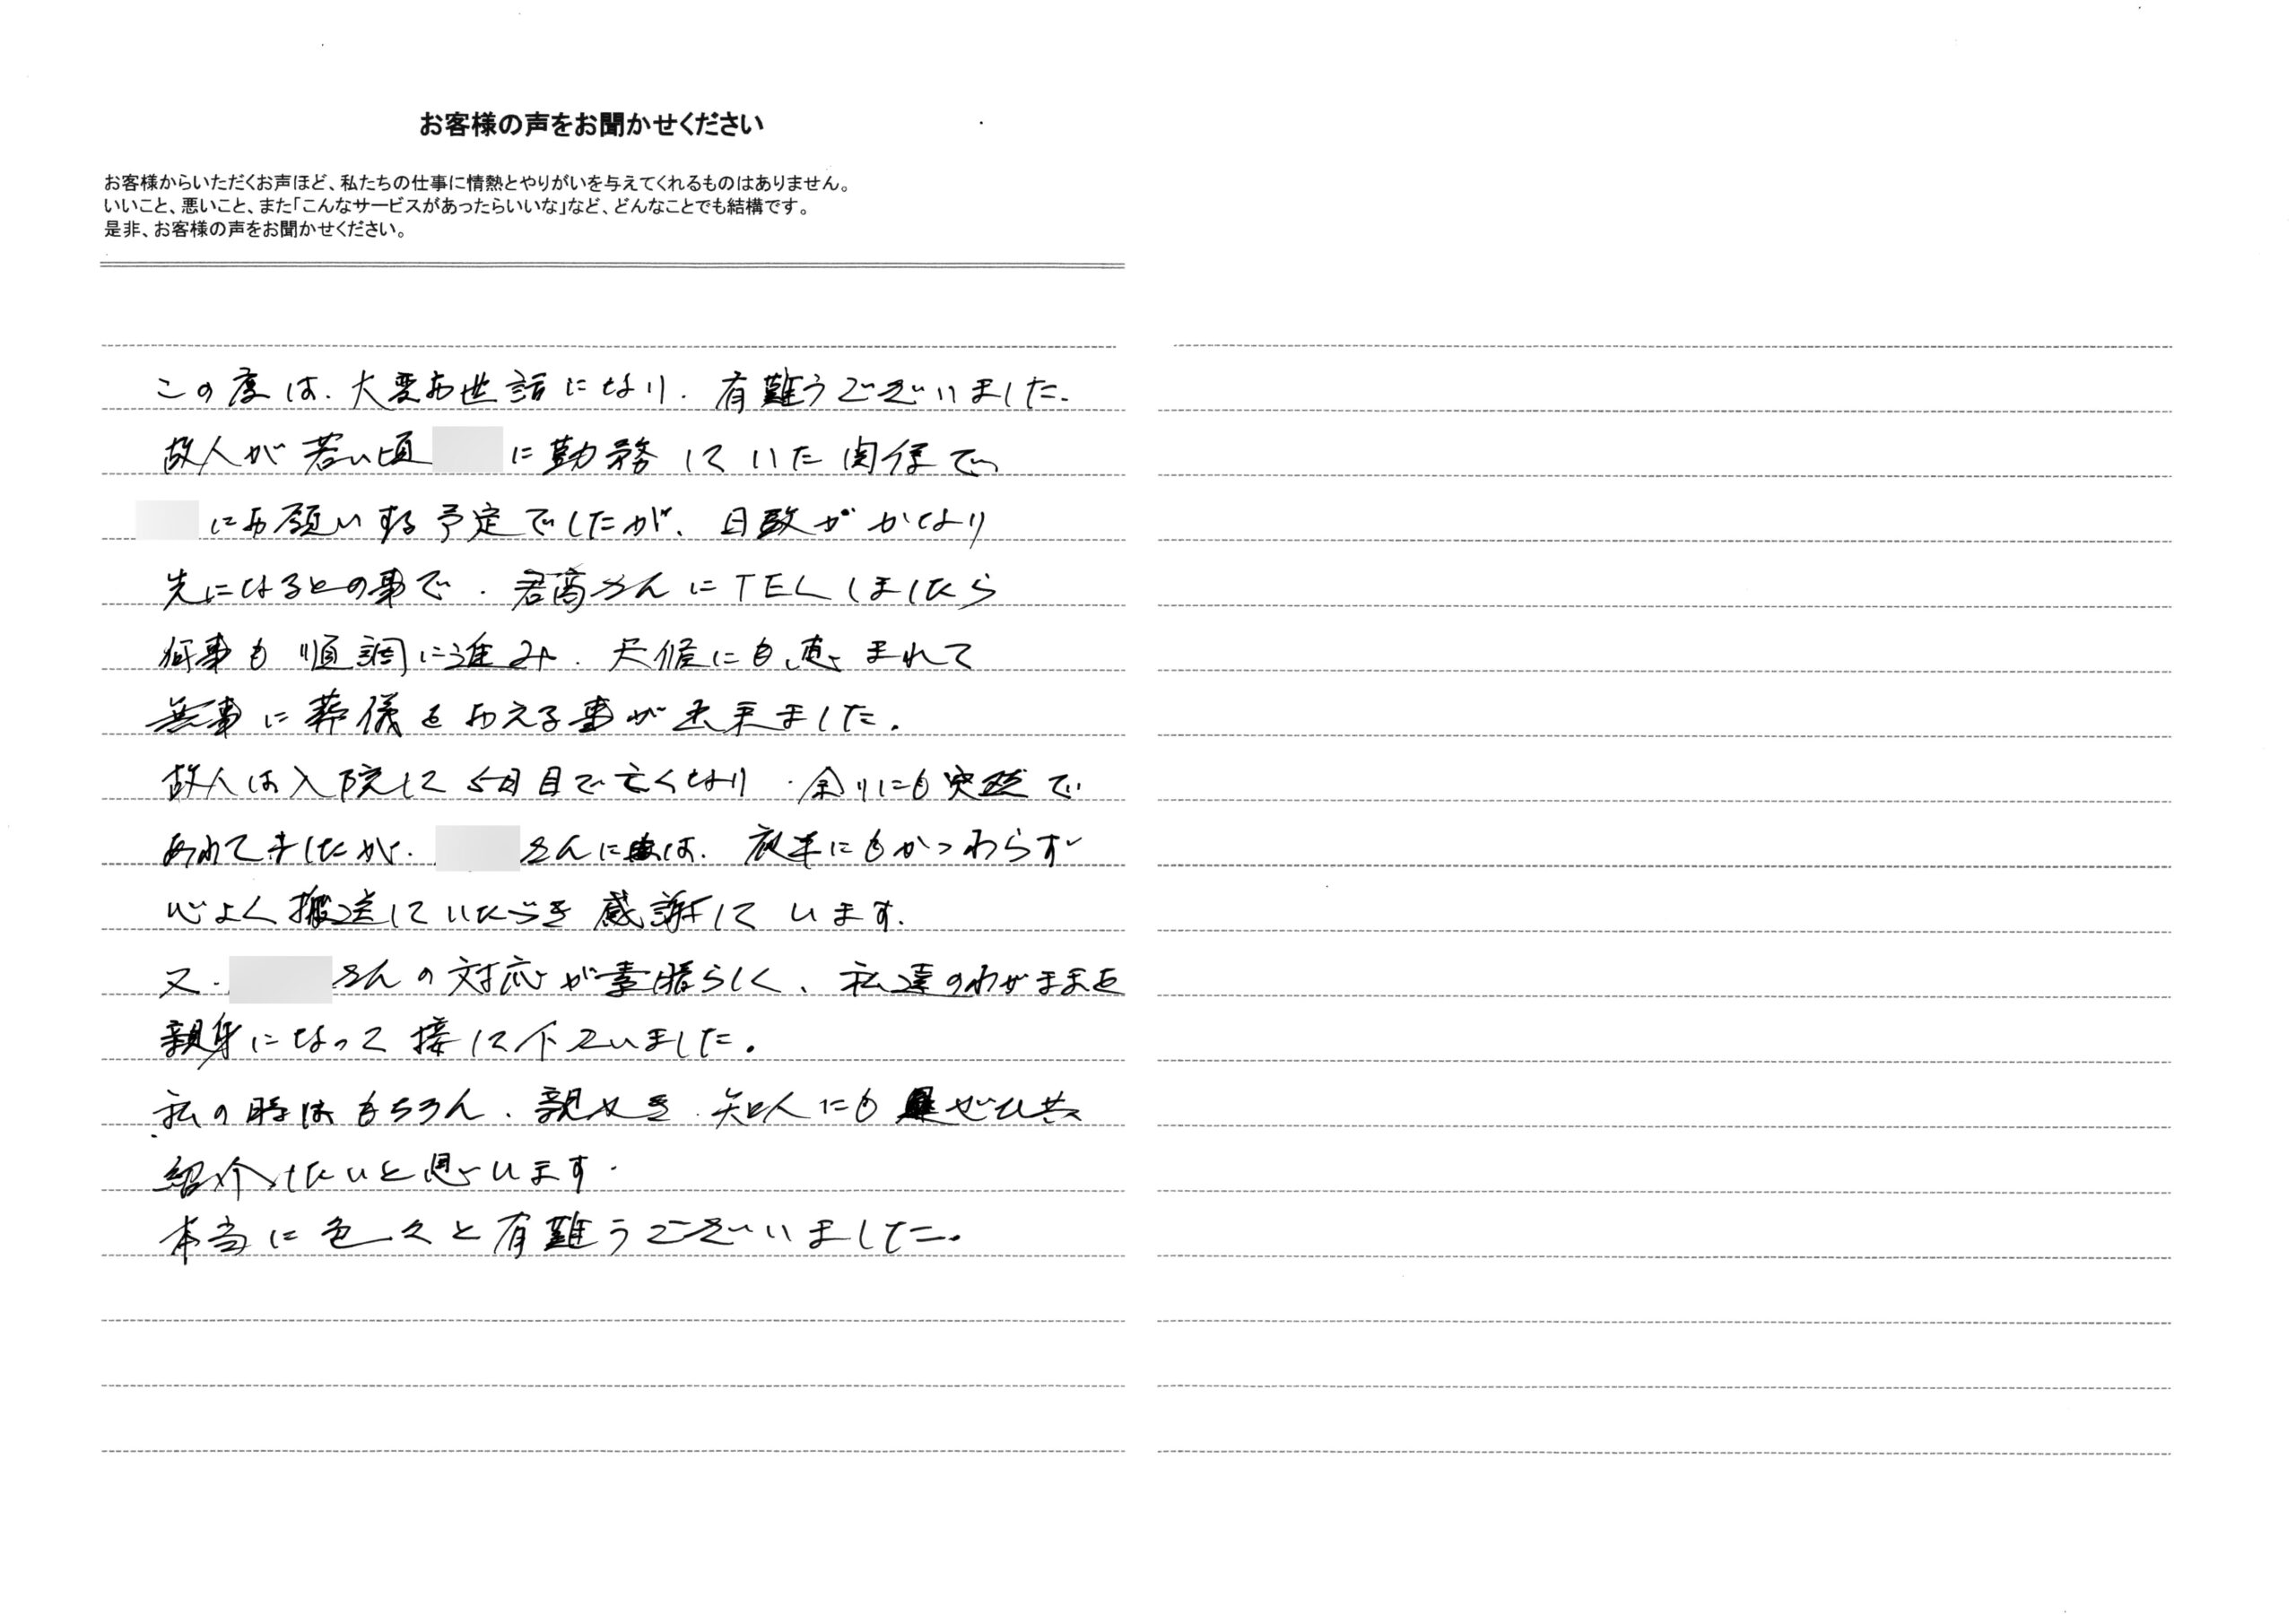 お客様の声をお聞かせください
お客様からいただくお声ほど、私たちの仕事に情熱とやりがいを与えてくれるものはありません。
いいこと、悪いこと、また「こんなサービスがあったらいいな」など、どんなことでも結構です。
是非、お客様の声をお聞かせください。
この度は、大変お世話になり、有難うございました。
故人が若い頃 に勤務していた関係で
にお願いする予定でしたが、日数がかなり
先になるとの事で、 さんにTELしましたら
何事も順調に進み、天候にも恵まれて
無事に葬儀を終える事が出来ました。
故人は入院して 日目で亡くなり、余りにも突然で
あわてましたが、 さんには、夜半にもかゝわらず
心よく搬送していたゞき感謝しています。
又、 さんの対応が素晴らしく、私達のわがままを
親身になって接して下さいました。
私の時はもちろん、親せき、知人にもぜひ共
紹介したいと思います。
本当に色々と有難うございました。